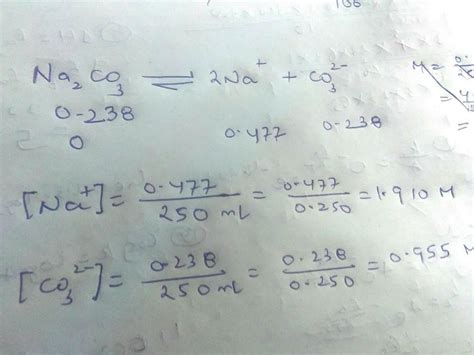 Na₂CO₃ ⇌ 2Na⁺ + CO₃²⁻
0-238
0 0.477 0.238
M = 0.
[Na⁺] = 0.477/250 ml = 0.477/0.250 = 1.910 M
[CO₃²⁻] = 0.238/250 ml = 0.238/0.250 = 0.955 M